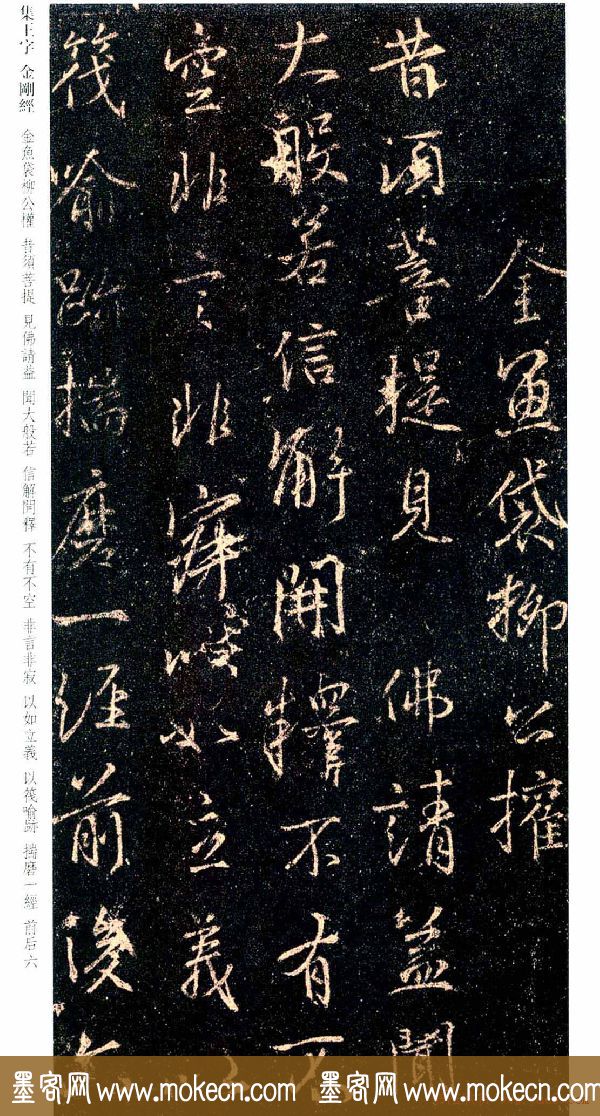 金魚袋柳公權
昔須菩提見 佛請益聞
大般若信解開釋不有不
空非言非如立義
筏喻跡揣磨一經前後六
集王字 金剛經 金魚袋柳公權 昔須菩提 見佛請益 聞大般若 信解開釋 不有不空 非言非寂 以如立義 以筏喻跡 揣磨一經 前后六
墨客网 www.mokecn.com 墨客网 www.mokecn.com 墨客网 www.mokecn.com